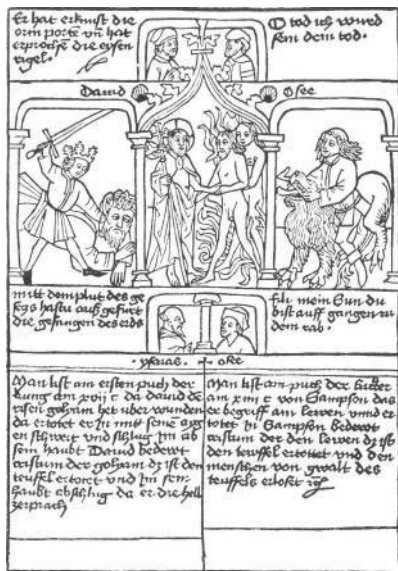 Er hat erknist die
orin porte vn̄ hat
erproche die eysen
rigel.
O tod ich wurd
sein dein tod.
Dauid
Osee
mitt dem plut des ge
hastu auß gefurt
die gefangen des erds
fili mein Sun du
bist auff gangen zu
dem rab.
ysaias
Man list am ersten puch der
kung am xvij c da dauid de
risen goliam het uberwunden
da ertotet er In mitt seinē aig
en schwert und schlug Im ab
sein haubt Dauid bedewt
cristum der goliam dz ist den
teuffel ertott und Im sein
haubt abschlug da er die hell
zerprach
Man list am puch der
am xiiii c von Sampson das
er begriff ain lewen vnnd er
totet In Sampson bedewt
cristum der den lewen dz ist
den teuffel ertottet vnd den
menschen von gwalt des
teuffels erloset